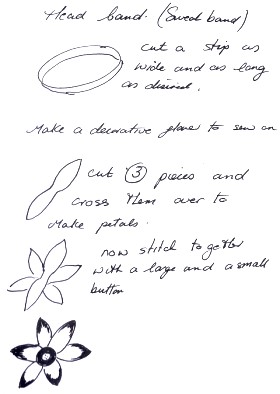 Head band. (Sweat band)
cut a strip as
wide and as long
as desired.
Make a decorative flower to sew on
cut ③ pieces and
cross them over to
Make petals.
now stitch together
with a large and a small
button